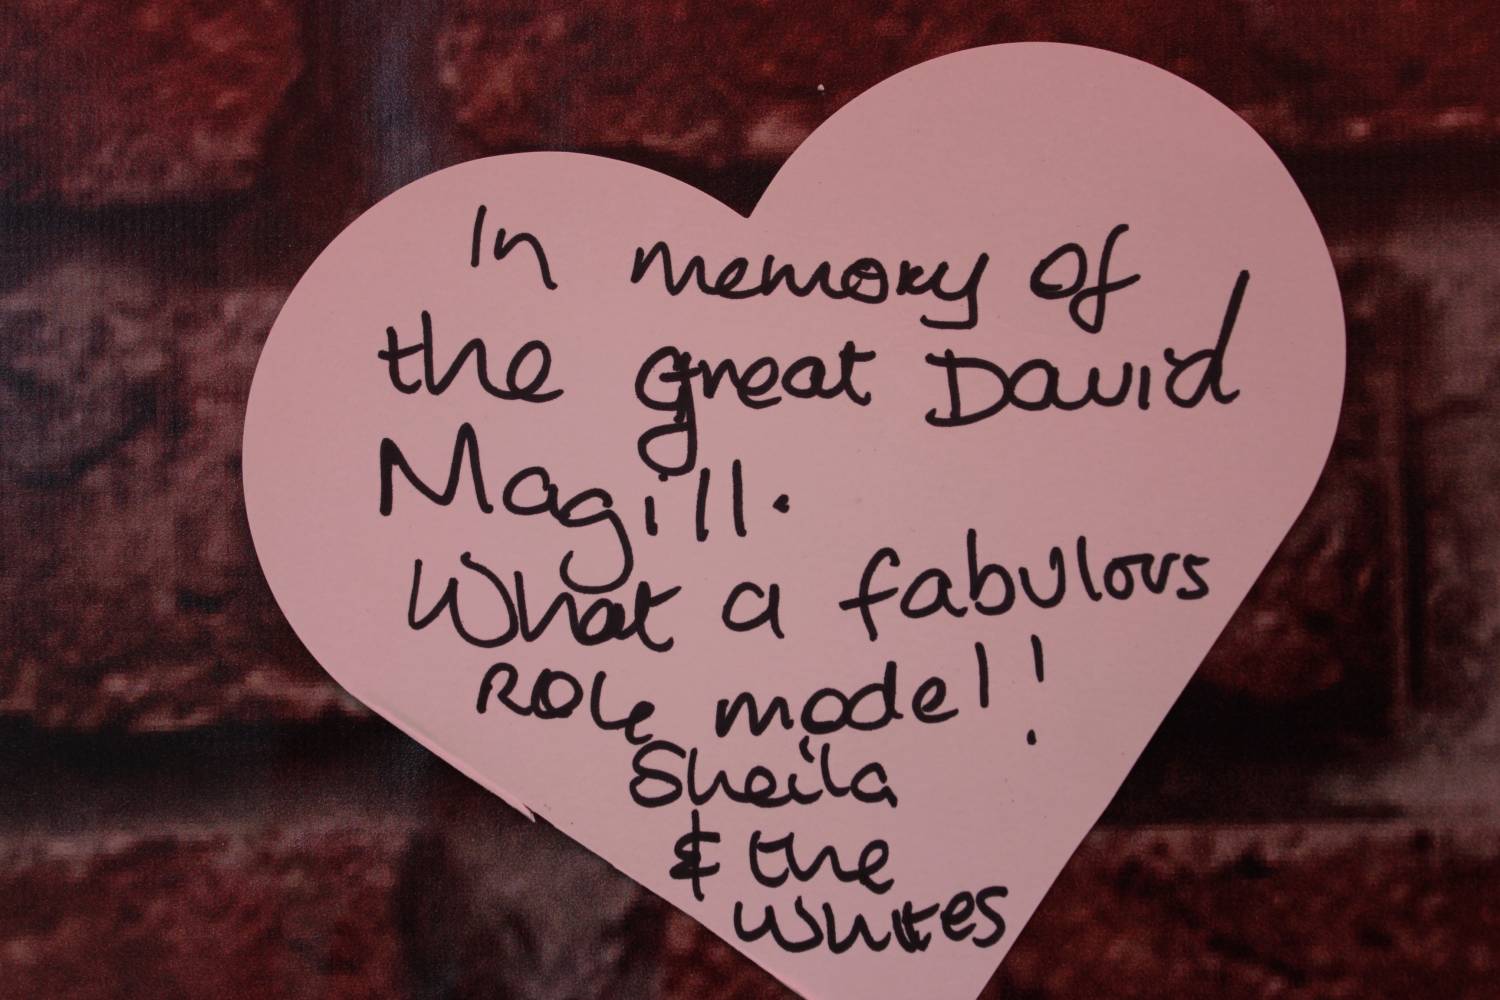 In memory of
the great David
Magill.
What a fabulous
Role model!
Sheila
& the
Whites